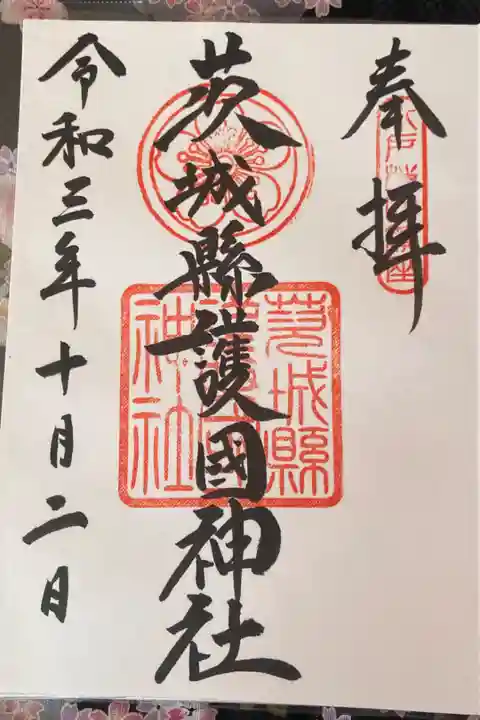 奉拝
茨城縣護國神社
茨城縣護國神社
令和三年十月二日